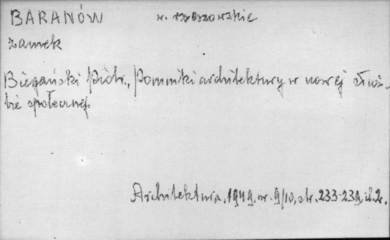 BARANÓW w. rzeszowskie
zamek
Biegański Piotr, Pomniki architektury w nowej służ-
bie społecznej.
Architektura, 1949, nr. 9/10, str. 233-239, il. 2.